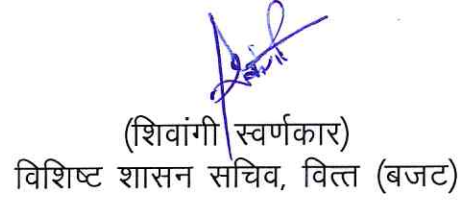 (शिवांगी स्वर्णकार)
विशिष्ट शासन सचिव, वित्त (बजट)